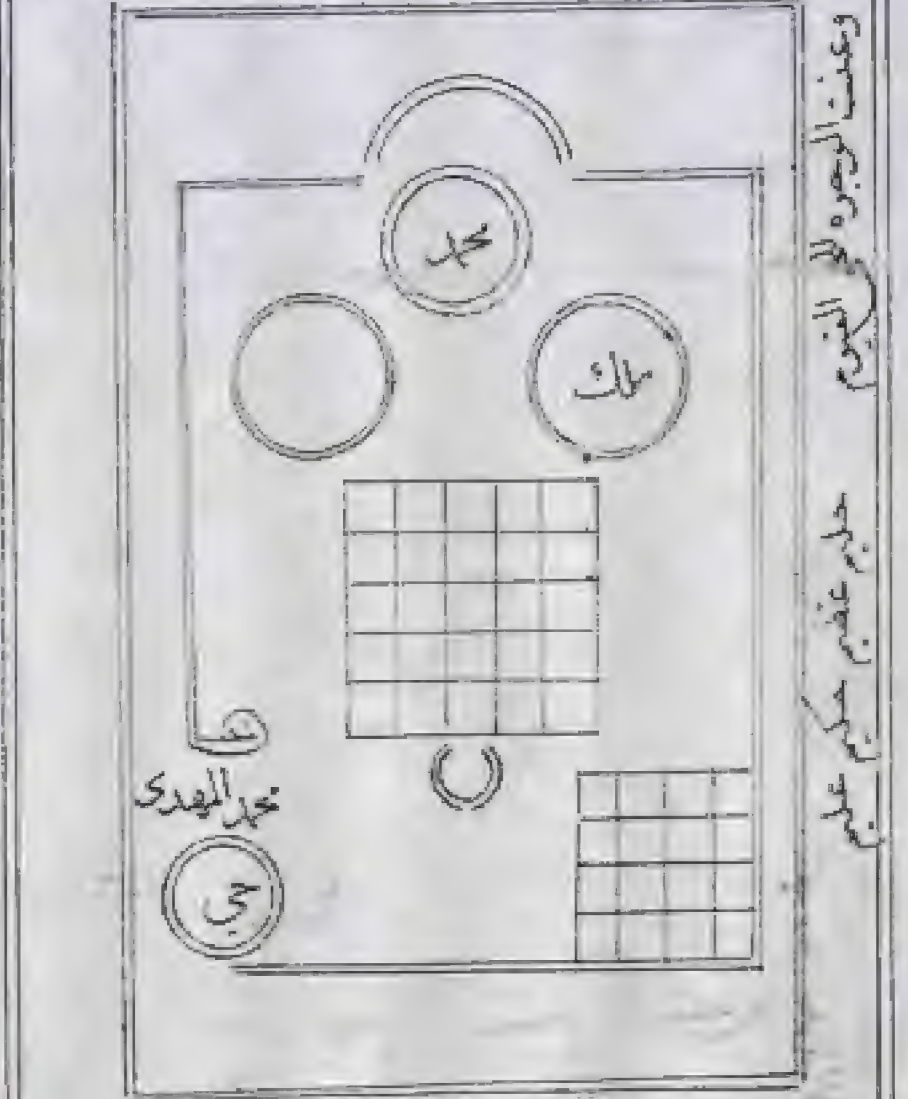 وعنت الوجوه للحي القيوم
حليم عظيم حكيم عليم
محمد
ملك
محمد المهدى
حي